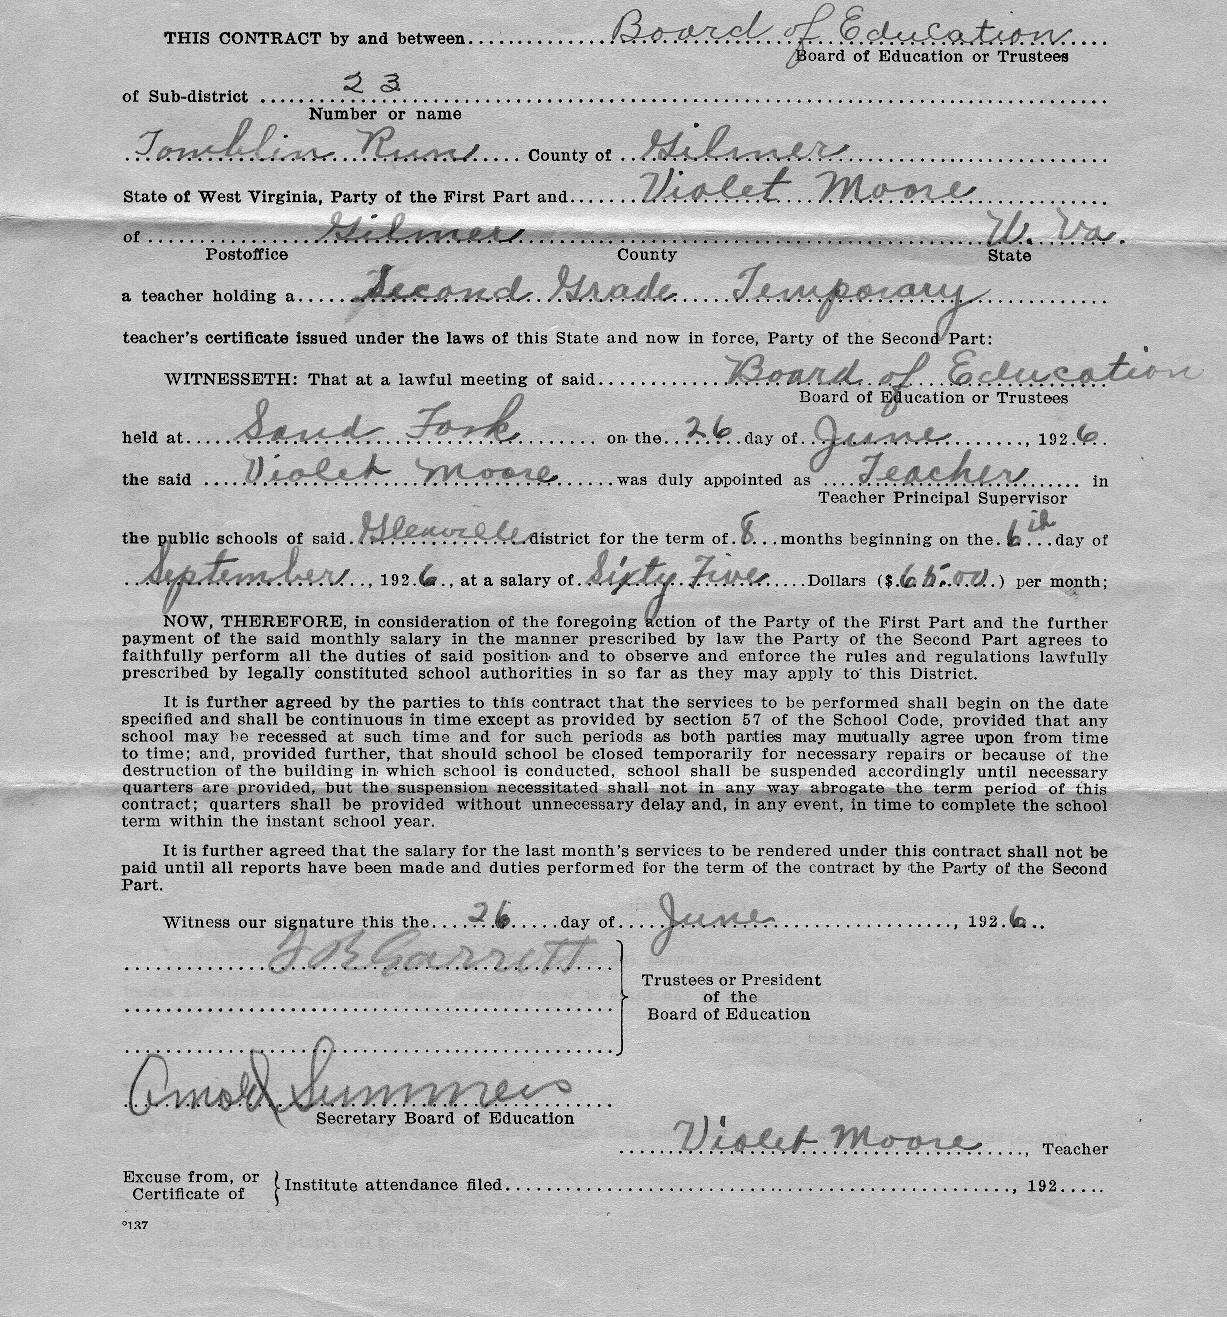 THIS CONTRACT by and between Board of Education
Board of Education or Trustees
of Sub-district 23
Number or name
Tomblin Run County of Gilmer
State of West Virginia, Party of the First Part and Violet Moore
of Gilmer W. Va.
Postoffice County State
a teacher holding a Second Grade Temporary
teacher's certificate issued under the laws of this State and now in force, Party of the Second Part:
WITNESSETH: That at a lawful meeting of said Board of Education
Board of Education or Trustees
held at Sand Fork on the 26 day of June, 1926.
the said Violet Moore was duly appointed as Teacher in
Teacher Principal Supervisor
the public schools of said Glenville district for the term of 8 months beginning on the 6th day of
September, 1926, at a salary of Sixty Five Dollars ($65.00) per month;
NOW, THEREFORE, in consideration of the foregoing action of the Party of the First Part and the further
payment of the said monthly salary in the manner prescribed by law the Party of the Second Part agrees to
faithfully perform all the duties of said position and to observe and enforce the rules and regulations lawfully
prescribed by legally constituted school authorities in so far as they may apply to this District.
It is further agreed by the parties to this contract that the services to be performed shall begin on the date
specified and shall be continuous in time except as provided by section 57 of the School Code, provided that any
school may be recessed at such time and for such periods as both parties may mutually agree upon from time
to time; and, provided further, that should school be closed temporarily for necessary repairs or because of the
destruction of the building in which school is conducted, school shall be suspended accordingly until necessary
quarters are provided, but the suspension necessitated shall not in any way abrogate the term period of this
contract; quarters shall be provided without unnecessary delay and, in any event, in time to complete the school
term within the instant school year.
It is further agreed that the salary for the last month's services to be rendered under this contract shall not be
paid until all reports have been made and duties performed for the term of the contract by the Party of the Second
Part.
Witness our signature this the 26 day of June, 1926.
Garrett
Trustees or President
of the
Board of Education
Summers
Secretary Board of Education
Violet Moore, Teacher
Excuse from, or
Certificate of } Institute attendance filed, 192
°137